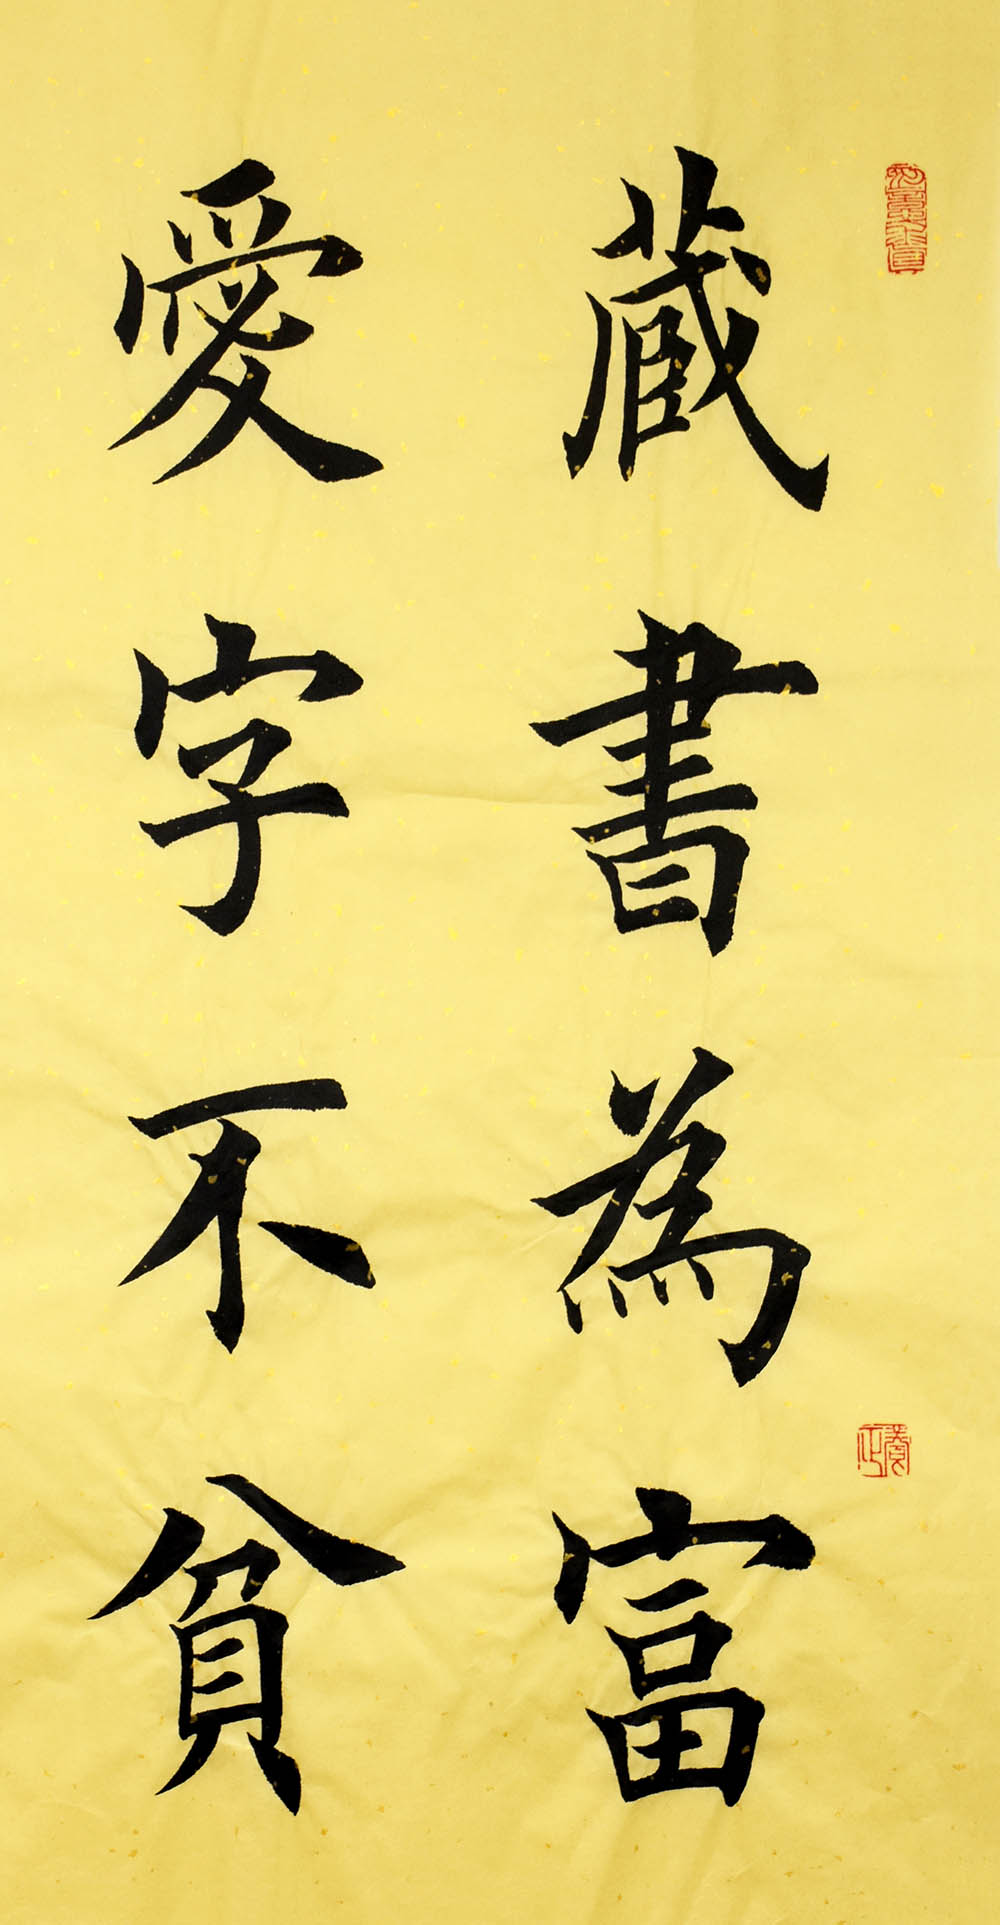 藏書為富
愛字不貧